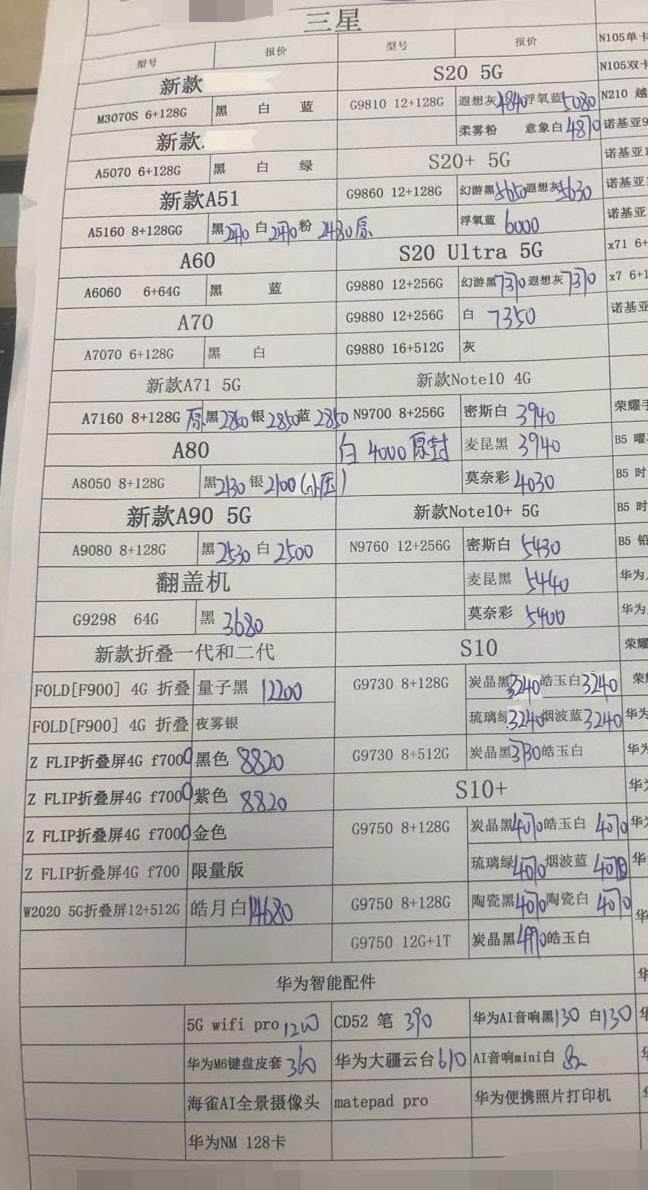 三星
型号 报价 型号 报价
新款 S20 5G
M3070S 6+128G 黑 白 蓝 G9810 12+128G 遐想灰4840浮氧蓝5080
新款 柔雾粉 意象白4870
A5070 6+128G 黑 白 绿 S20+ 5G
新款A51 G9860 12+128G 幻游黑5650遐想灰5630
A5160 8+128GG 黑2470白2470粉 2480原 浮氧蓝 6000
A60 S20 Ultra 5G
A6060 6+64G 黑 蓝 G9880 12+256G 幻游黑7370遐想灰7370
A70 G9880 12+256G 白 7350
A7070 6+128G 黑 白 G9880 16+512G 灰
新款A71 5G 新款Note10 4G
A7160 8+128G 原黑2860银2850蓝2850 N9700 8+256G 密斯白 3940
A80 白 4000原封 麦昆黑 3940
A8050 8+128G 黑2130银2100 莫奈彩 4030
新款A90 5G 新款Note10+ 5G
A9080 8+128G 黑2530白2500 N9760 12+256G 密斯白 5430
翻盖机 麦昆黑 5440
G9298 64G 黑 3680 莫奈彩 5400
新款折叠一代和二代 S10
FOLD[F900] 4G 折叠 量子黑 12200 G9730 8+128G 炭晶黑3240皓玉白3240
FOLD[F900] 4G 折叠 夜雾银 琉璃绿3240烟波蓝3240
Z FLIP折叠屏4G f7000 黑色 8820 G9730 8+512G 炭晶黑3730皓玉白
Z FLIP折叠屏4G f7000 紫色 8820 S10+
Z FLIP折叠屏4G f7000 金色 G9750 8+128G 炭晶黑4070皓玉白 4070
Z FLIP折叠屏4G f700 限量版 琉璃绿4070烟波蓝 4070
W2020 5G折叠屏12+512G 皓月白14680 G9750 8+128G 陶瓷黑4070陶瓷白 4070
G9750 12G+1T 炭晶黑4990皓玉白
华为智能配件
5G wifi pro1200 CD52 笔 390 华为AI音响黑130 白130
华为M6键盘皮套360 华为大疆云台610 AI音响mini白 82
海雀AI全景摄像头 matepad pro 华为便携照片打印机
华为NM 128卡
N105单卡
N105双卡
N210 越
诺基亚9
诺基亚
诺基亚
诺基亚
x71 6+
x7 6+1
诺基亚
荣耀手
B5 曜
B5 时
B5 时
B5 铂
华为
华为
荣耀
荣
华为
华
华
华
华
华
华
华
华
华